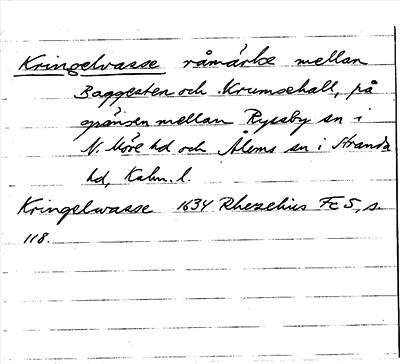 Kringelvasse råmärke mellan
Baggesten och Krumsehall, på
gränsen mellan Ryssby sn i
N. Möre hd och Ålems sn i Stranda
hd, Kalm. l.
Kringelwasse 1634 Rhezelius Fc5, s.
118.